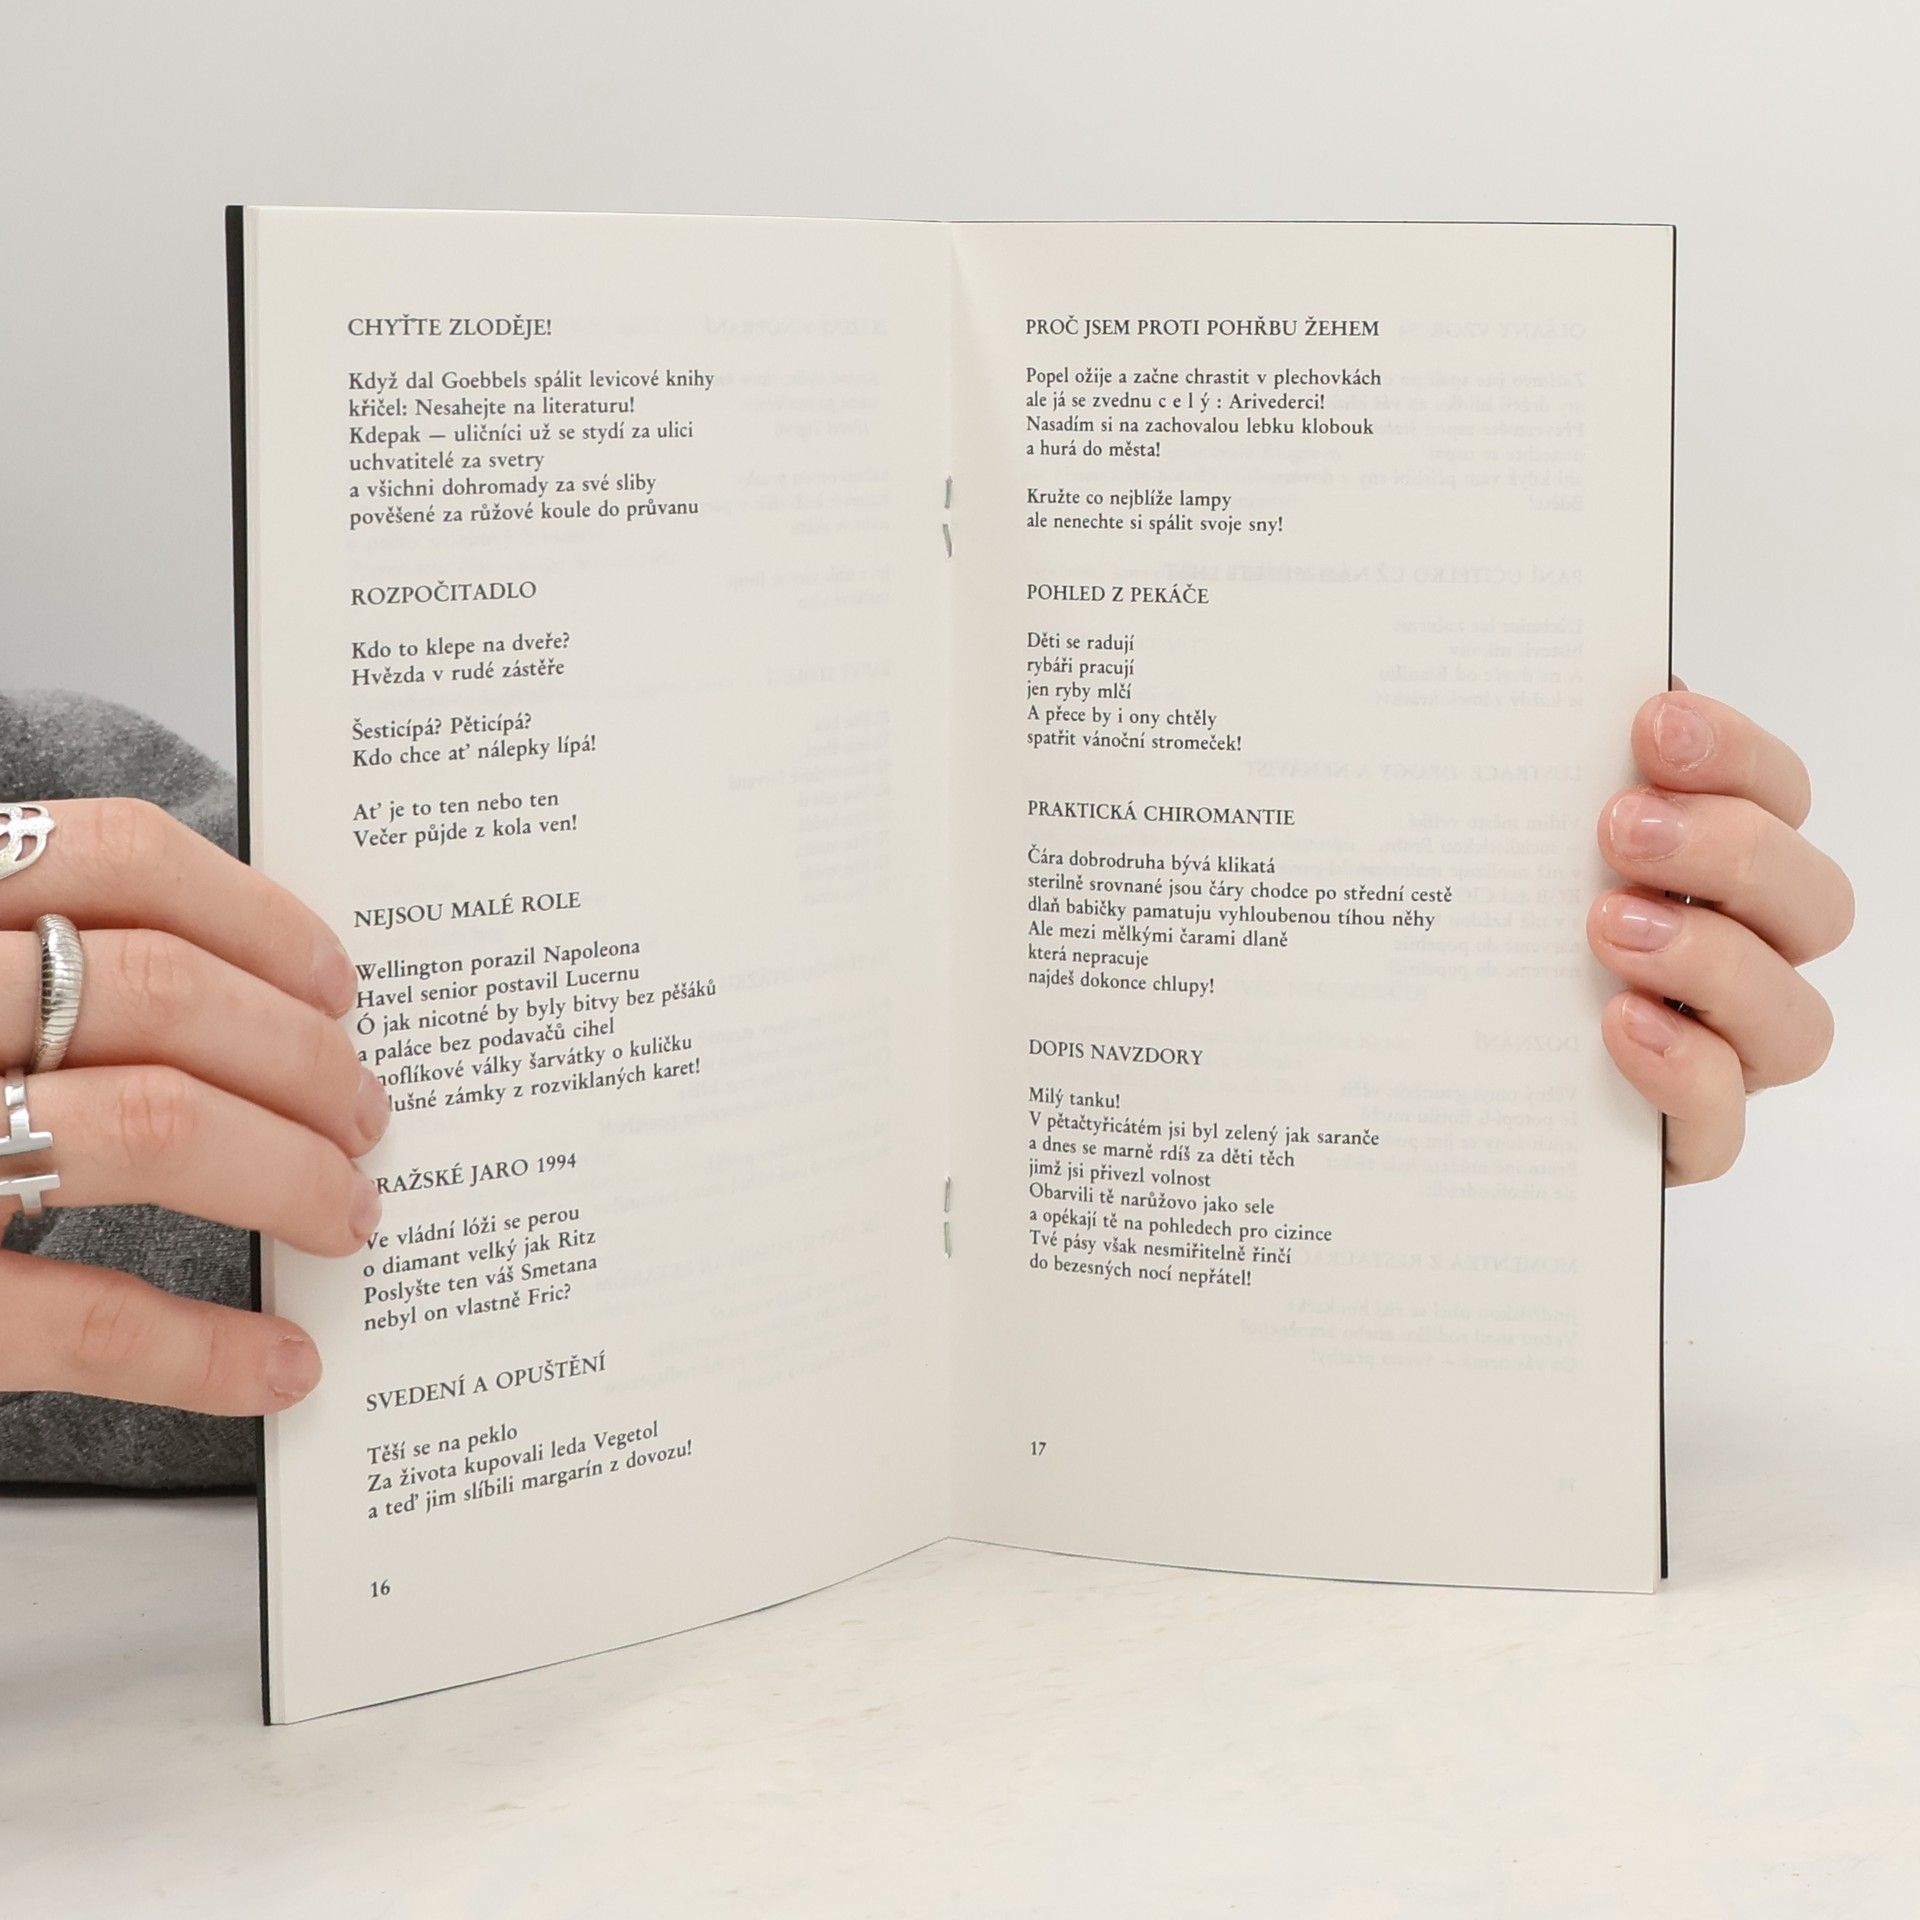 CHYŤTE ZLODĚJE!
Když dal Goebbels spálit levicové knihy
křičel: Nesahejte na literaturu!
Kdepak — uličníci už se stydí za ulici
uchvatitelé za svetry
a všichni dohromady za své sliby
pověšené za růžové koule do průvanu
ROZPOČITADLO
Kdo to klepe na dveře?
Hvězda v rudé zástěře
Šesticípá? Pěticípá?
Kdo chce ať nálepky lípá!
Ať je to ten nebo ten
Večer půjde z kola ven!
NEJSOU MALÉ ROLE
Wellington porazil Napoleona
Havel senior postavil Lucernu
Ó jak nicotné by byly bitvy bez pěšáků
a paláce bez podavačů cihel
války šarvátky o kuličku
zámky z rozviklaných karet!
JARO 1994
Ve vládní lóži se perou
o diamant velký jak Ritz
Poslyšte ten váš Smetana
nebyl on vlastně Fric?
SVEDENÍ A OPUŠTĚNÍ
Těší se na peklo
Za života kupovali leda Vegetol
a teď jim slíbili margarín z dovozu!
16
PROČ JSEM PROTI POHŘBU ŽEHEM
Popel ožije a začne chrastit v plechovkách
ale já se zvednu c e l ý : Arivederci!
Nasadím si na zachovalou lebku klobouk
a hurá do města!
Kružte co nejblíže lampy
ale nenechte si spálit svoje sny!
POHLED Z PEKÁČE
Děti se radují
rybáři pracují
jen ryby mlčí
A přece by i ony chtěly
spatřit vánoční stromeček!
PRAKTICKÁ CHIROMANTIE
Čára dobrodruha bývá klikatá
sterilně srovnané jsou čáry chodce po střední cestě
dlaň babičky pamatuju vyhloubenou tíhou něhy
Ale mezi mělkými čarami dlaně
která nepracuje
najdeš dokonce chlupy!
DOPIS NAVZDORY
Milý tanku!
V pětačtyřicátém jsi byl zelený jak saranče
a dnes se marně rdíš za děti těch
jimž jsi přivezl volnost
Obarvili tě narůžovo jako sele
a opékají tě na pohledech pro cizince
Tvé pásy však nesmiřitelně řinčí
do bezesných nocí nepřátel!
17